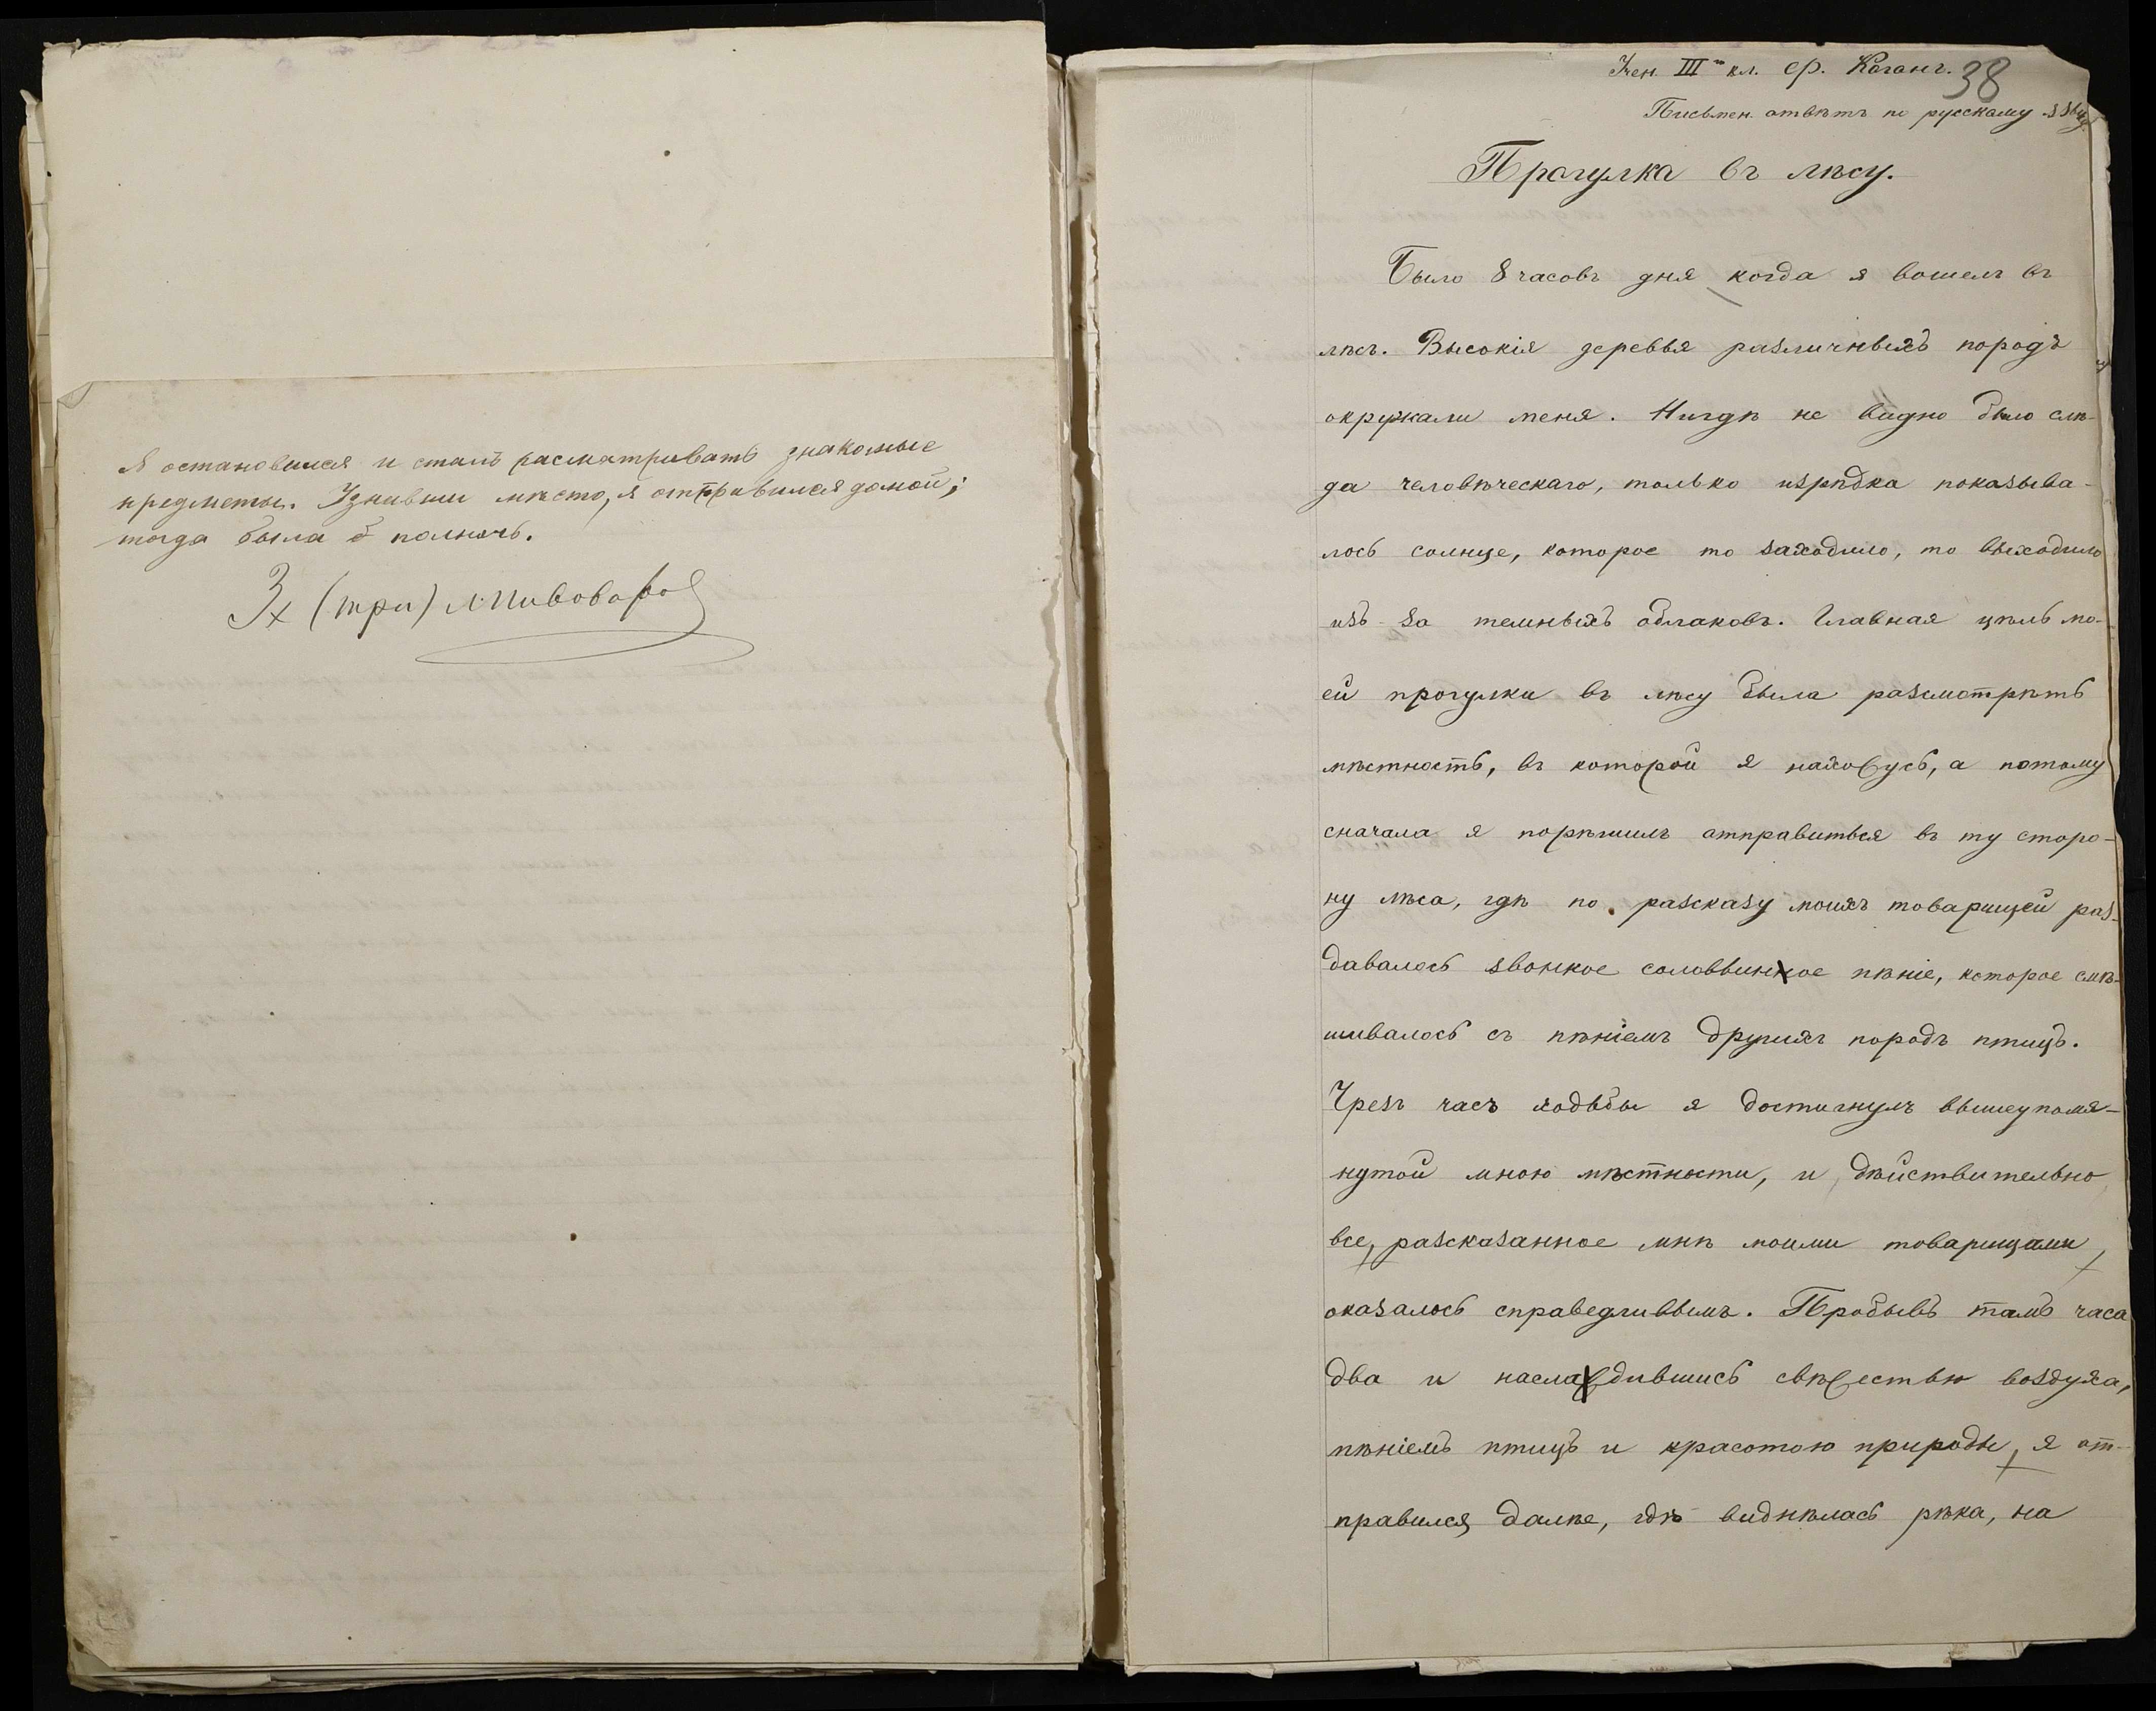 Я остановился и сталъ расматривать знакомые
предметы. Узнивши мѣсто, я отправился домой;
тогда была полночь.
3х (три) М. Пивоваровъ
Учен. III кл. Ср. Каганъ. 38
Письмен. отвѣтъ по русскому языку
Прогулка въ лѣсу.
Было 8 часовъ дня когда я вошелъ въ
лѣсъ. Высокія деревья различныхъ породъ
окружали меня. Нигдѣ не видно было слѣ-
да человѣческаго, только изрѣдка показыва-
лось солнце, которое то заходило, то выходило
изъ-за темныхъ облаковъ. Главная цѣль мо-
ей прогулки въ лѣсу была разсмотрѣть
мѣстность, въ которой я нахожусь, а потому
сначала я порѣшилъ отправиться въ ту сторо-
ну лѣса, гдѣ по разсказу моихъ товарищей раз-
давалось звонкое соловьиное пѣніе, которое смѣ-
шивалось съ пѣніемъ другихъ породъ птицъ.
Чрезъ часъ ходьбы я достигнулъ вышеупомя-
нутой мною мѣстности, и, дѣйствительно,
все, разсказанное мнѣ моими товарищами,
оказалось справедливымъ. Пробывъ тамъ часа
два и наслаждившись свѣжестью воздуха,
пѣніемъ птицъ и красотою природы, я от-
правился далѣе, гдѣ виднѣлась рѣка, на